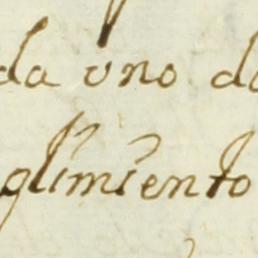 da uno da
glimiento